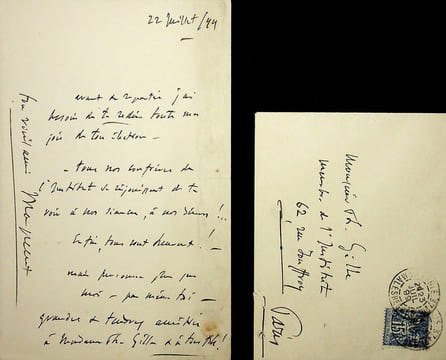 22 Juillet/99
avant de repartir j'ai
besoin de te redire toute ma
joie de ton élection –
– tous nos confrères de
l'Institut se réjouissent de te
voir à nos séances, à nos dîners !..
Enfin, tous sont heureux ! –
mais personne plus que
moi – pas même toi –
grandes et tendres amitiés
à Madame Th. Gille et à ton fils !
ton vieil ami Massenet
Monsieur Th. Gille
membre de l'Institut
62 rue Jouffroy
Paris
15